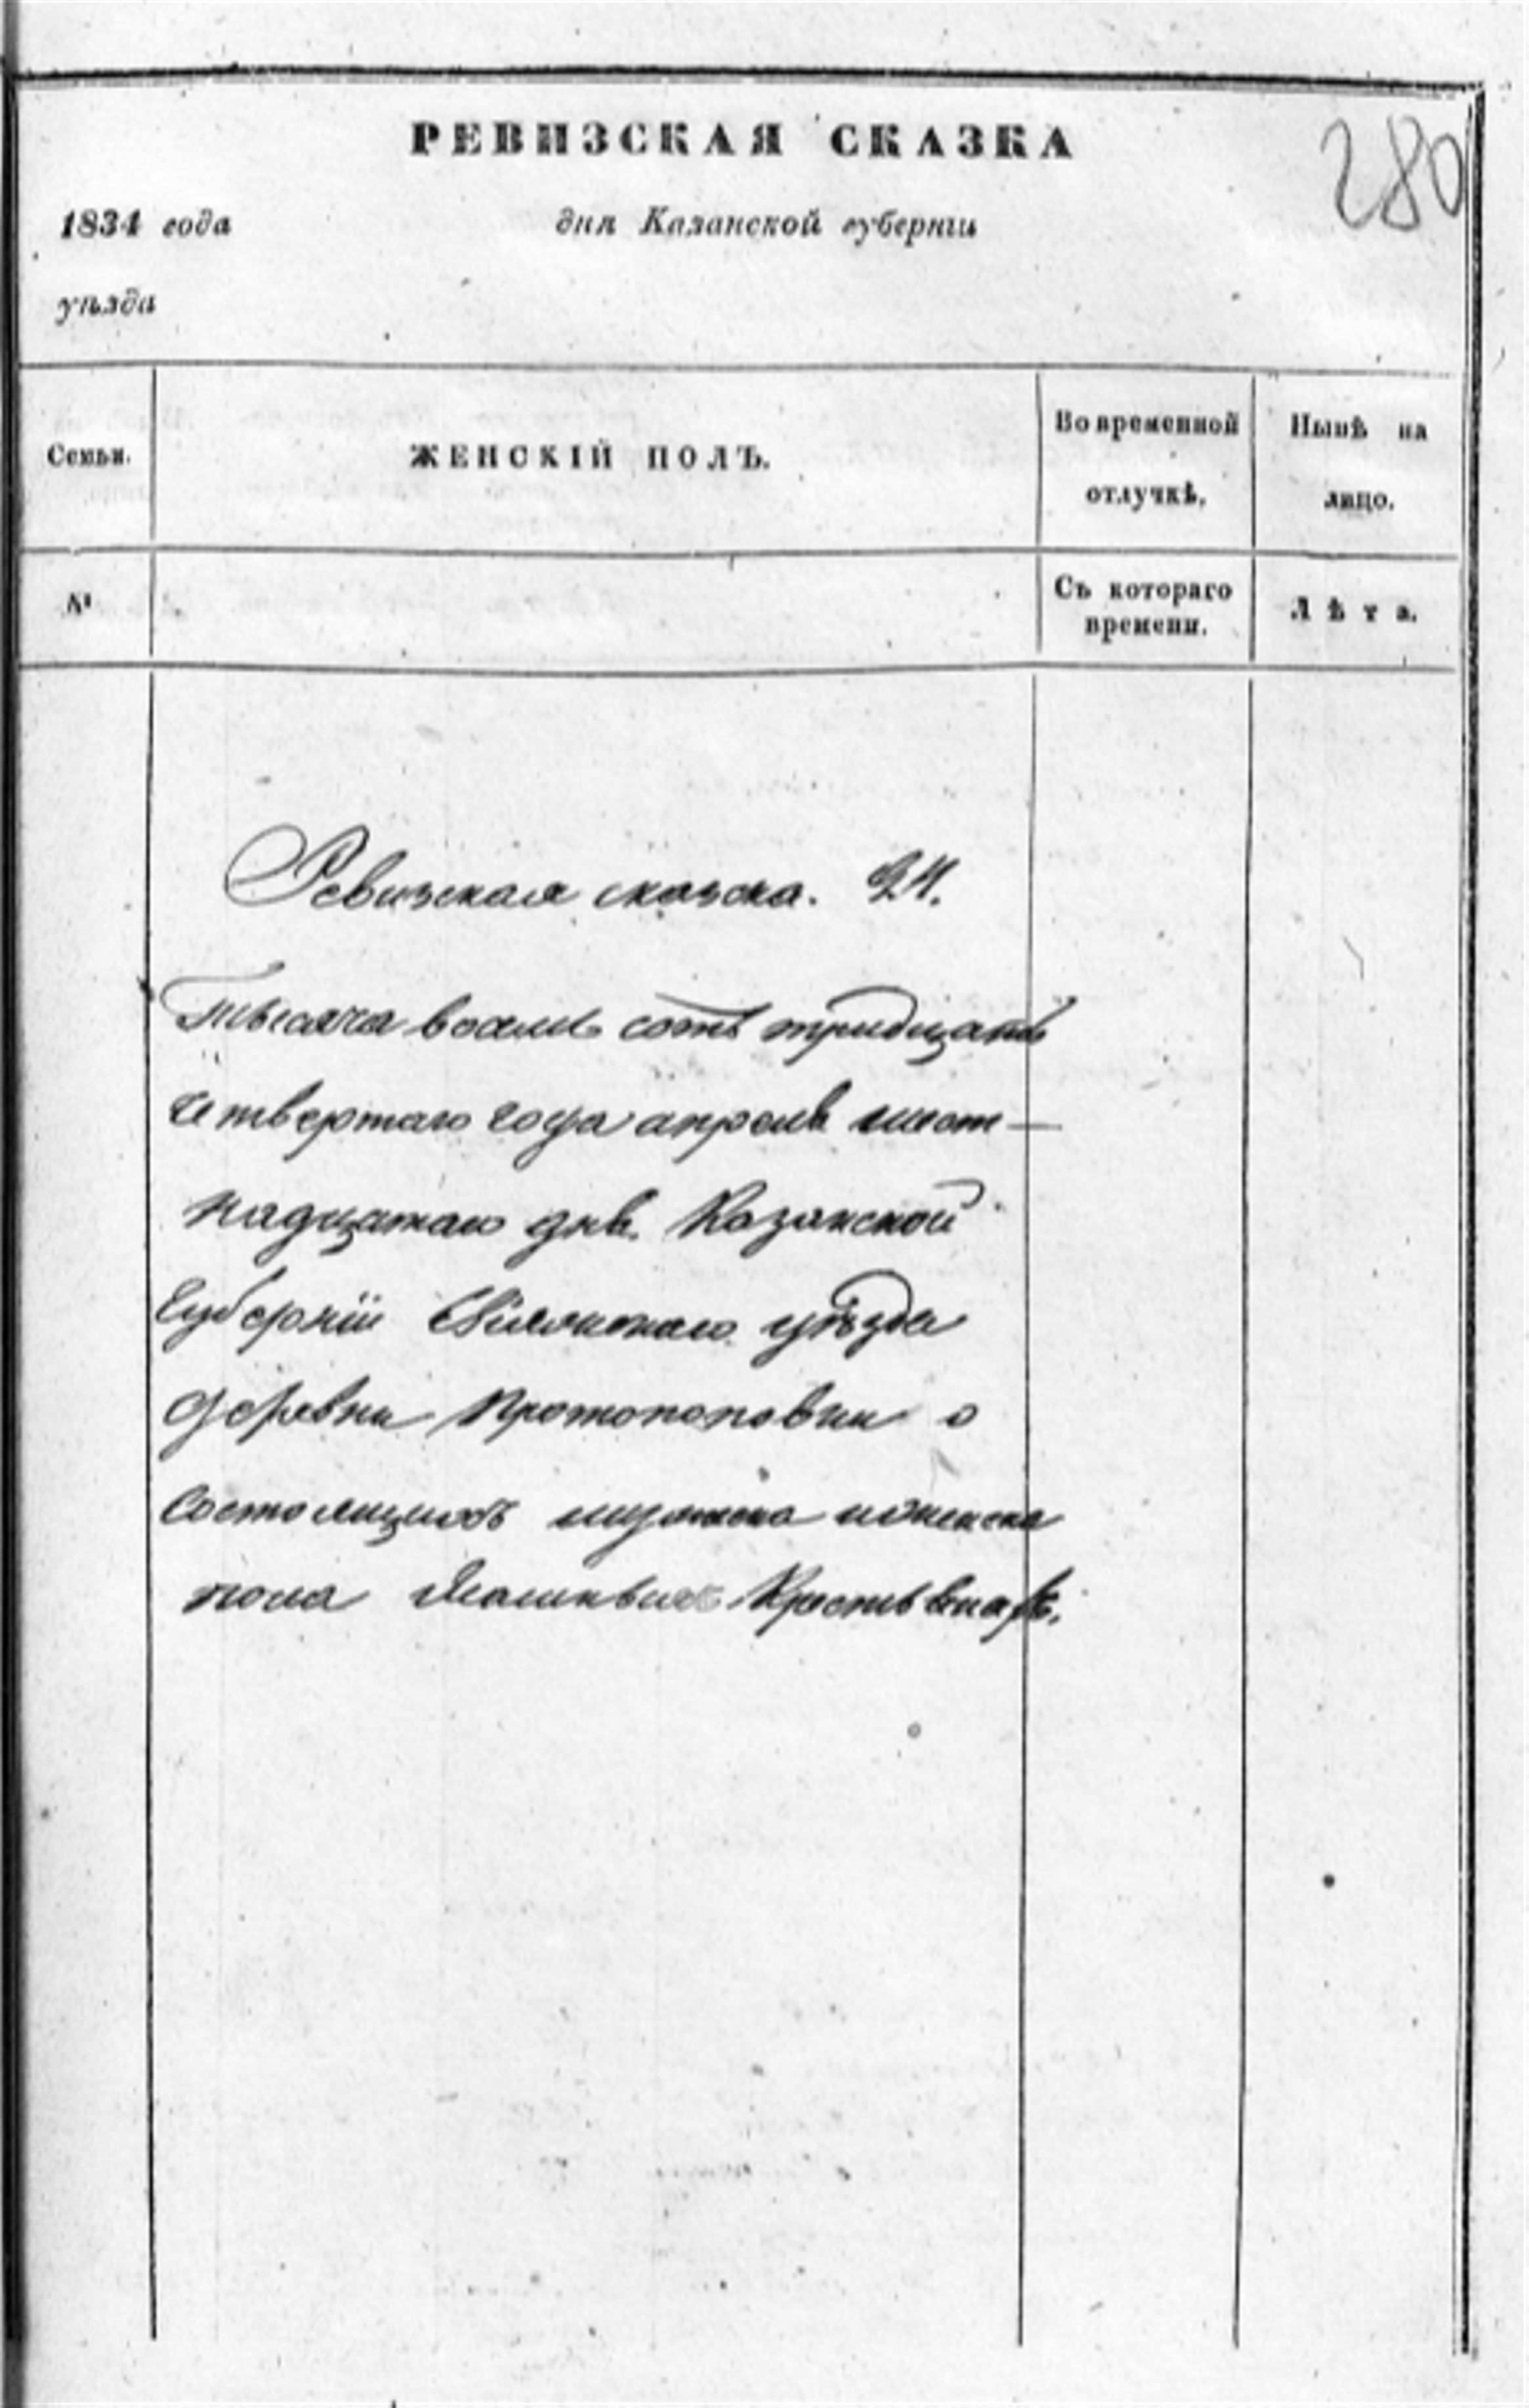 РЕВИЗСКАЯ СКАЗКА
280
1834 года дня Казанской губерніи
уѣзда
Семьи. ЖЕНСКІЙ ПОЛЪ. Во временной отлучкѣ. Нынѣ на лицо.
№ Съ котораго времени. Лѣта.
Ревизская сказка. 24.
Тысяча восемь сотъ тридцать
четвертаго года апреля шест-
надцатаго дня. Казанской
Губерніи Свіяжскаго уѣзда
деревни Протопоповки о
состоящихъ мужеска и женска
пола Крестьянахъ.